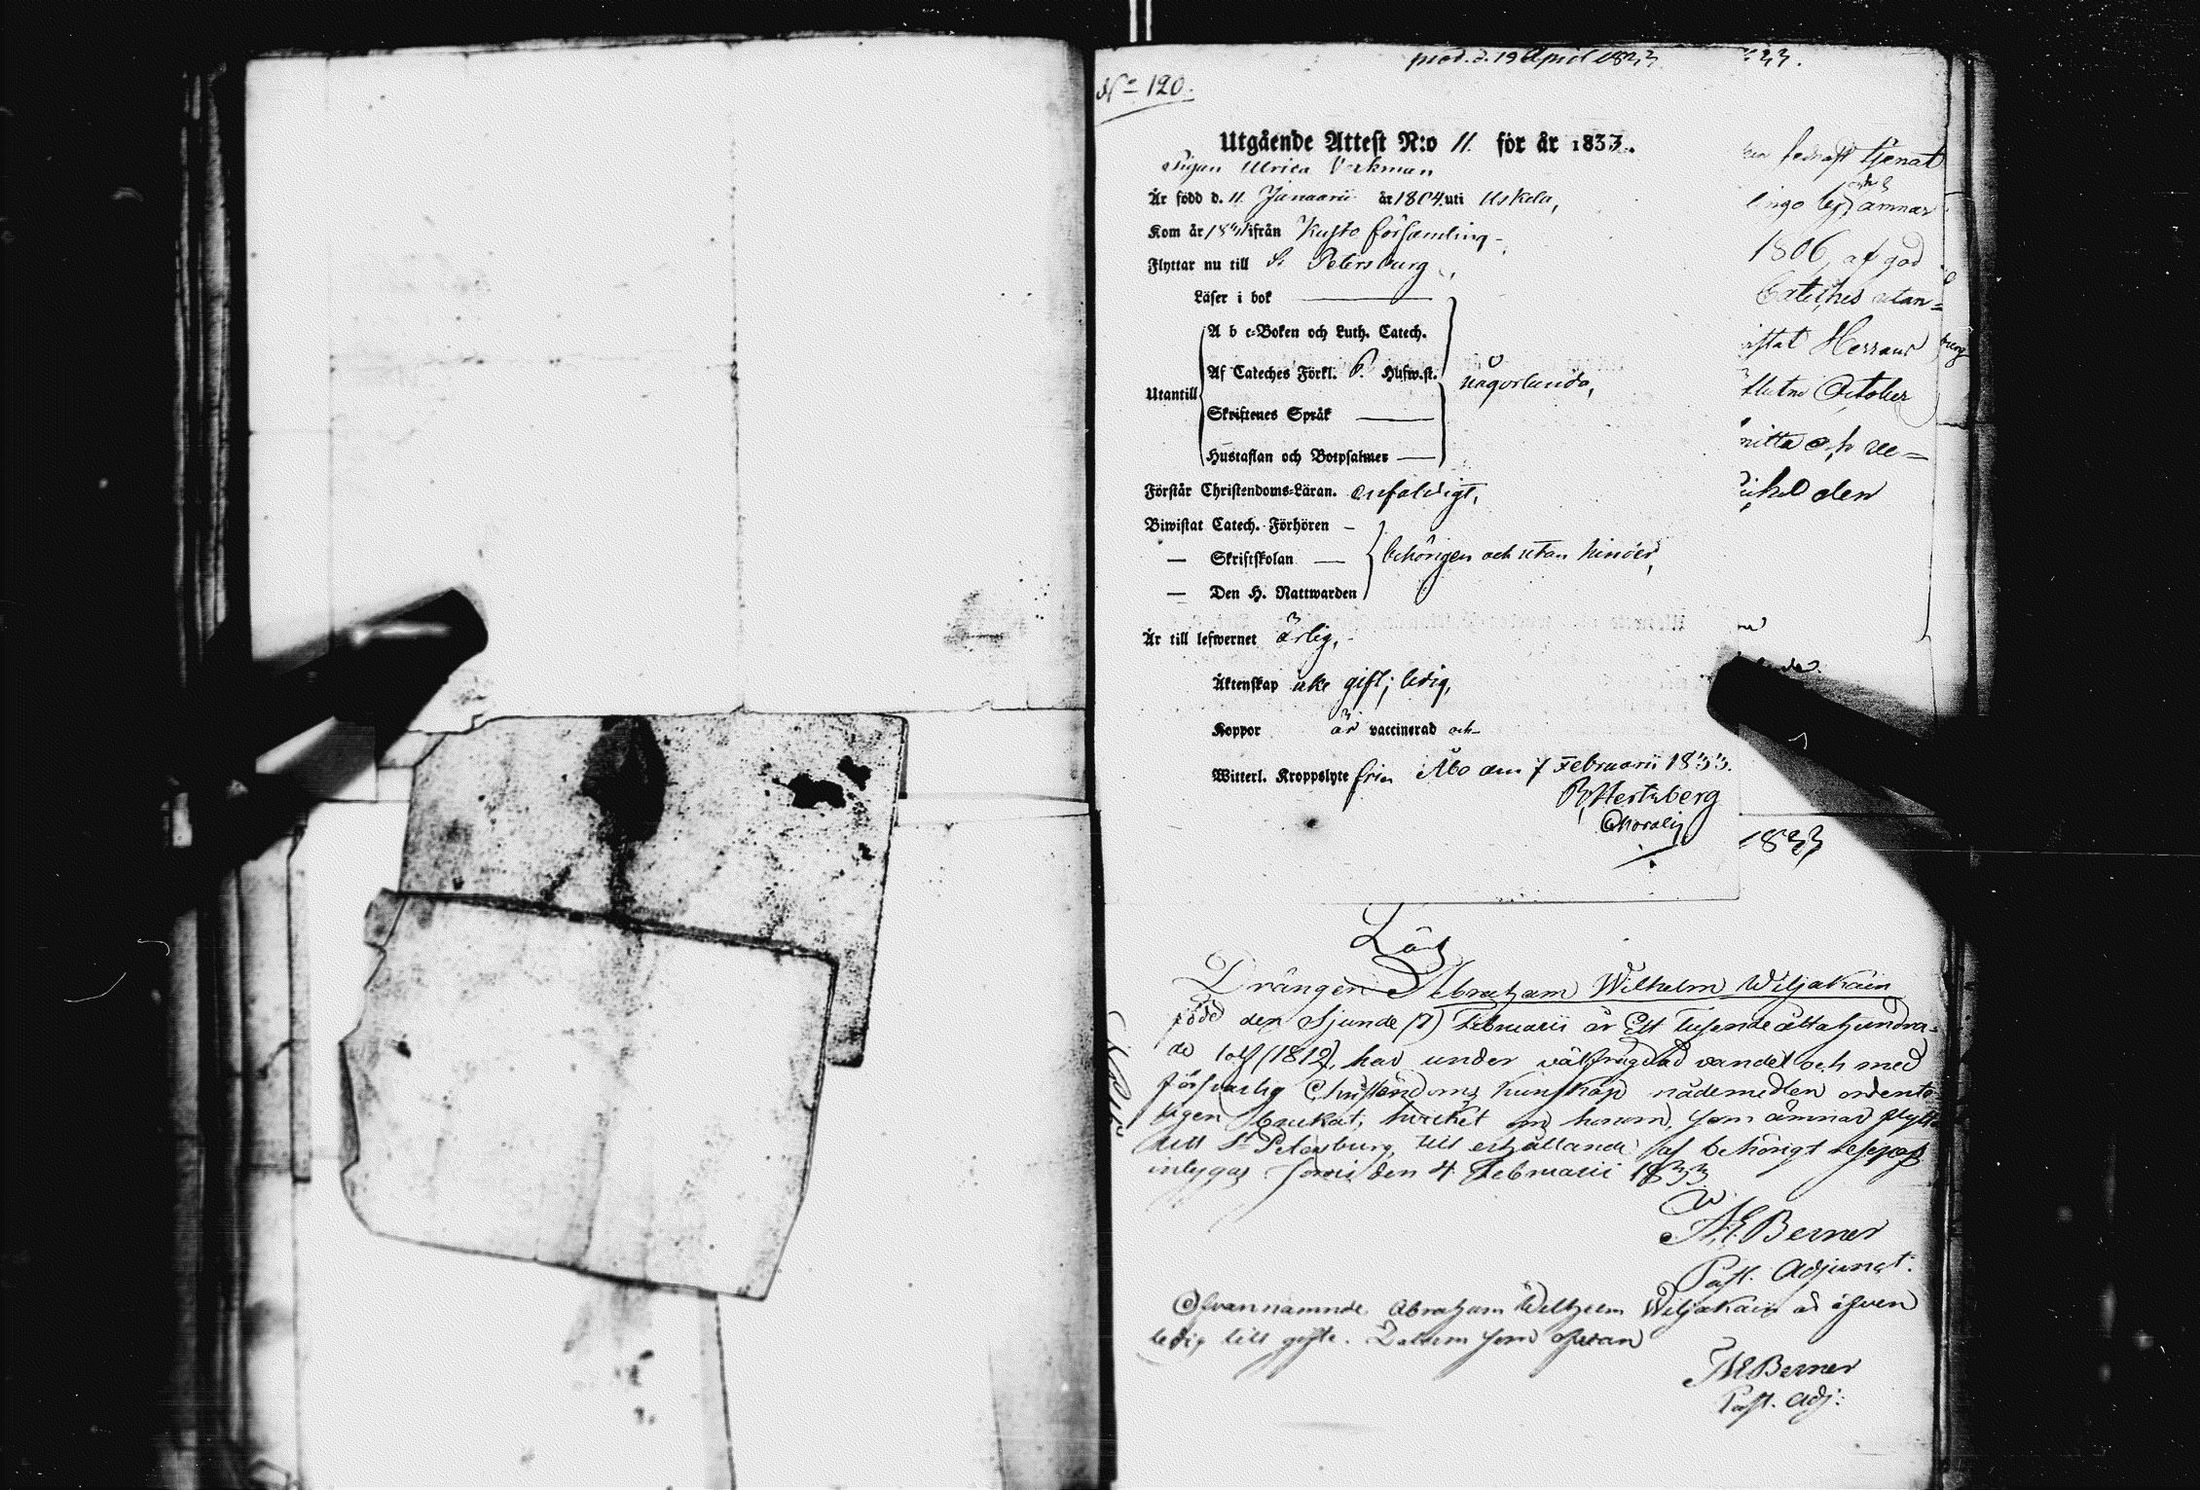 prod. d. 19 April 1833
33.
No 120.
Utgående Attest N:o 11. för år 1833.
Pigan Ulrica Verkman
Är född d. 11 Januarii år 1804 uti Uskela,
Kom år 1831 ifrån Kusto församling
Flyttar nu till St Petersburg,
Läser i bok
A b c-Boken och Luth. Catech.
Af Cateches Förkl. S. Husw.st.
Utantill
någorlunda,
Skriftenes Språk
Hustaflan och Botpsalmer
Förstår Christendoms-Läran. enfaldigt,
Biwistat Catech. Förhören
— Skriftskolan — behörigen och utan hinder,
— Den H. Nattwarden
Är till lefwernet ärlig,
Äktenskap icke gift; ledig,
Koppor är vaccinerad och
Witterl. Kroppslyte fri. Åbo den 7 Februarii 1833.
Hertzberg
tjenat
amnar
1806, af god
Cateches utan=
Herrans
October
den
1833
Drängen Abraham Wilhelm Wiljakain
född den Sjunde (7) Februarii år Ett tusende åttahundra-
de tolf (1812), har under välfrägdad vandel och med
försvarlig Christendoms kunskap nådemedlen ordent-
ligen brukat, hvilket om honom, som ämnar flytta
till St Petersburg, till erhållande af behörigt respass
intygas den 4 Februarii 1833
Berner
Past. Adjunct.
Ofvannämnde Abraham Wilhelm Wiljakain är äfven
ledig till gifte. Datum som ofvan
Berner
Past. Adj: